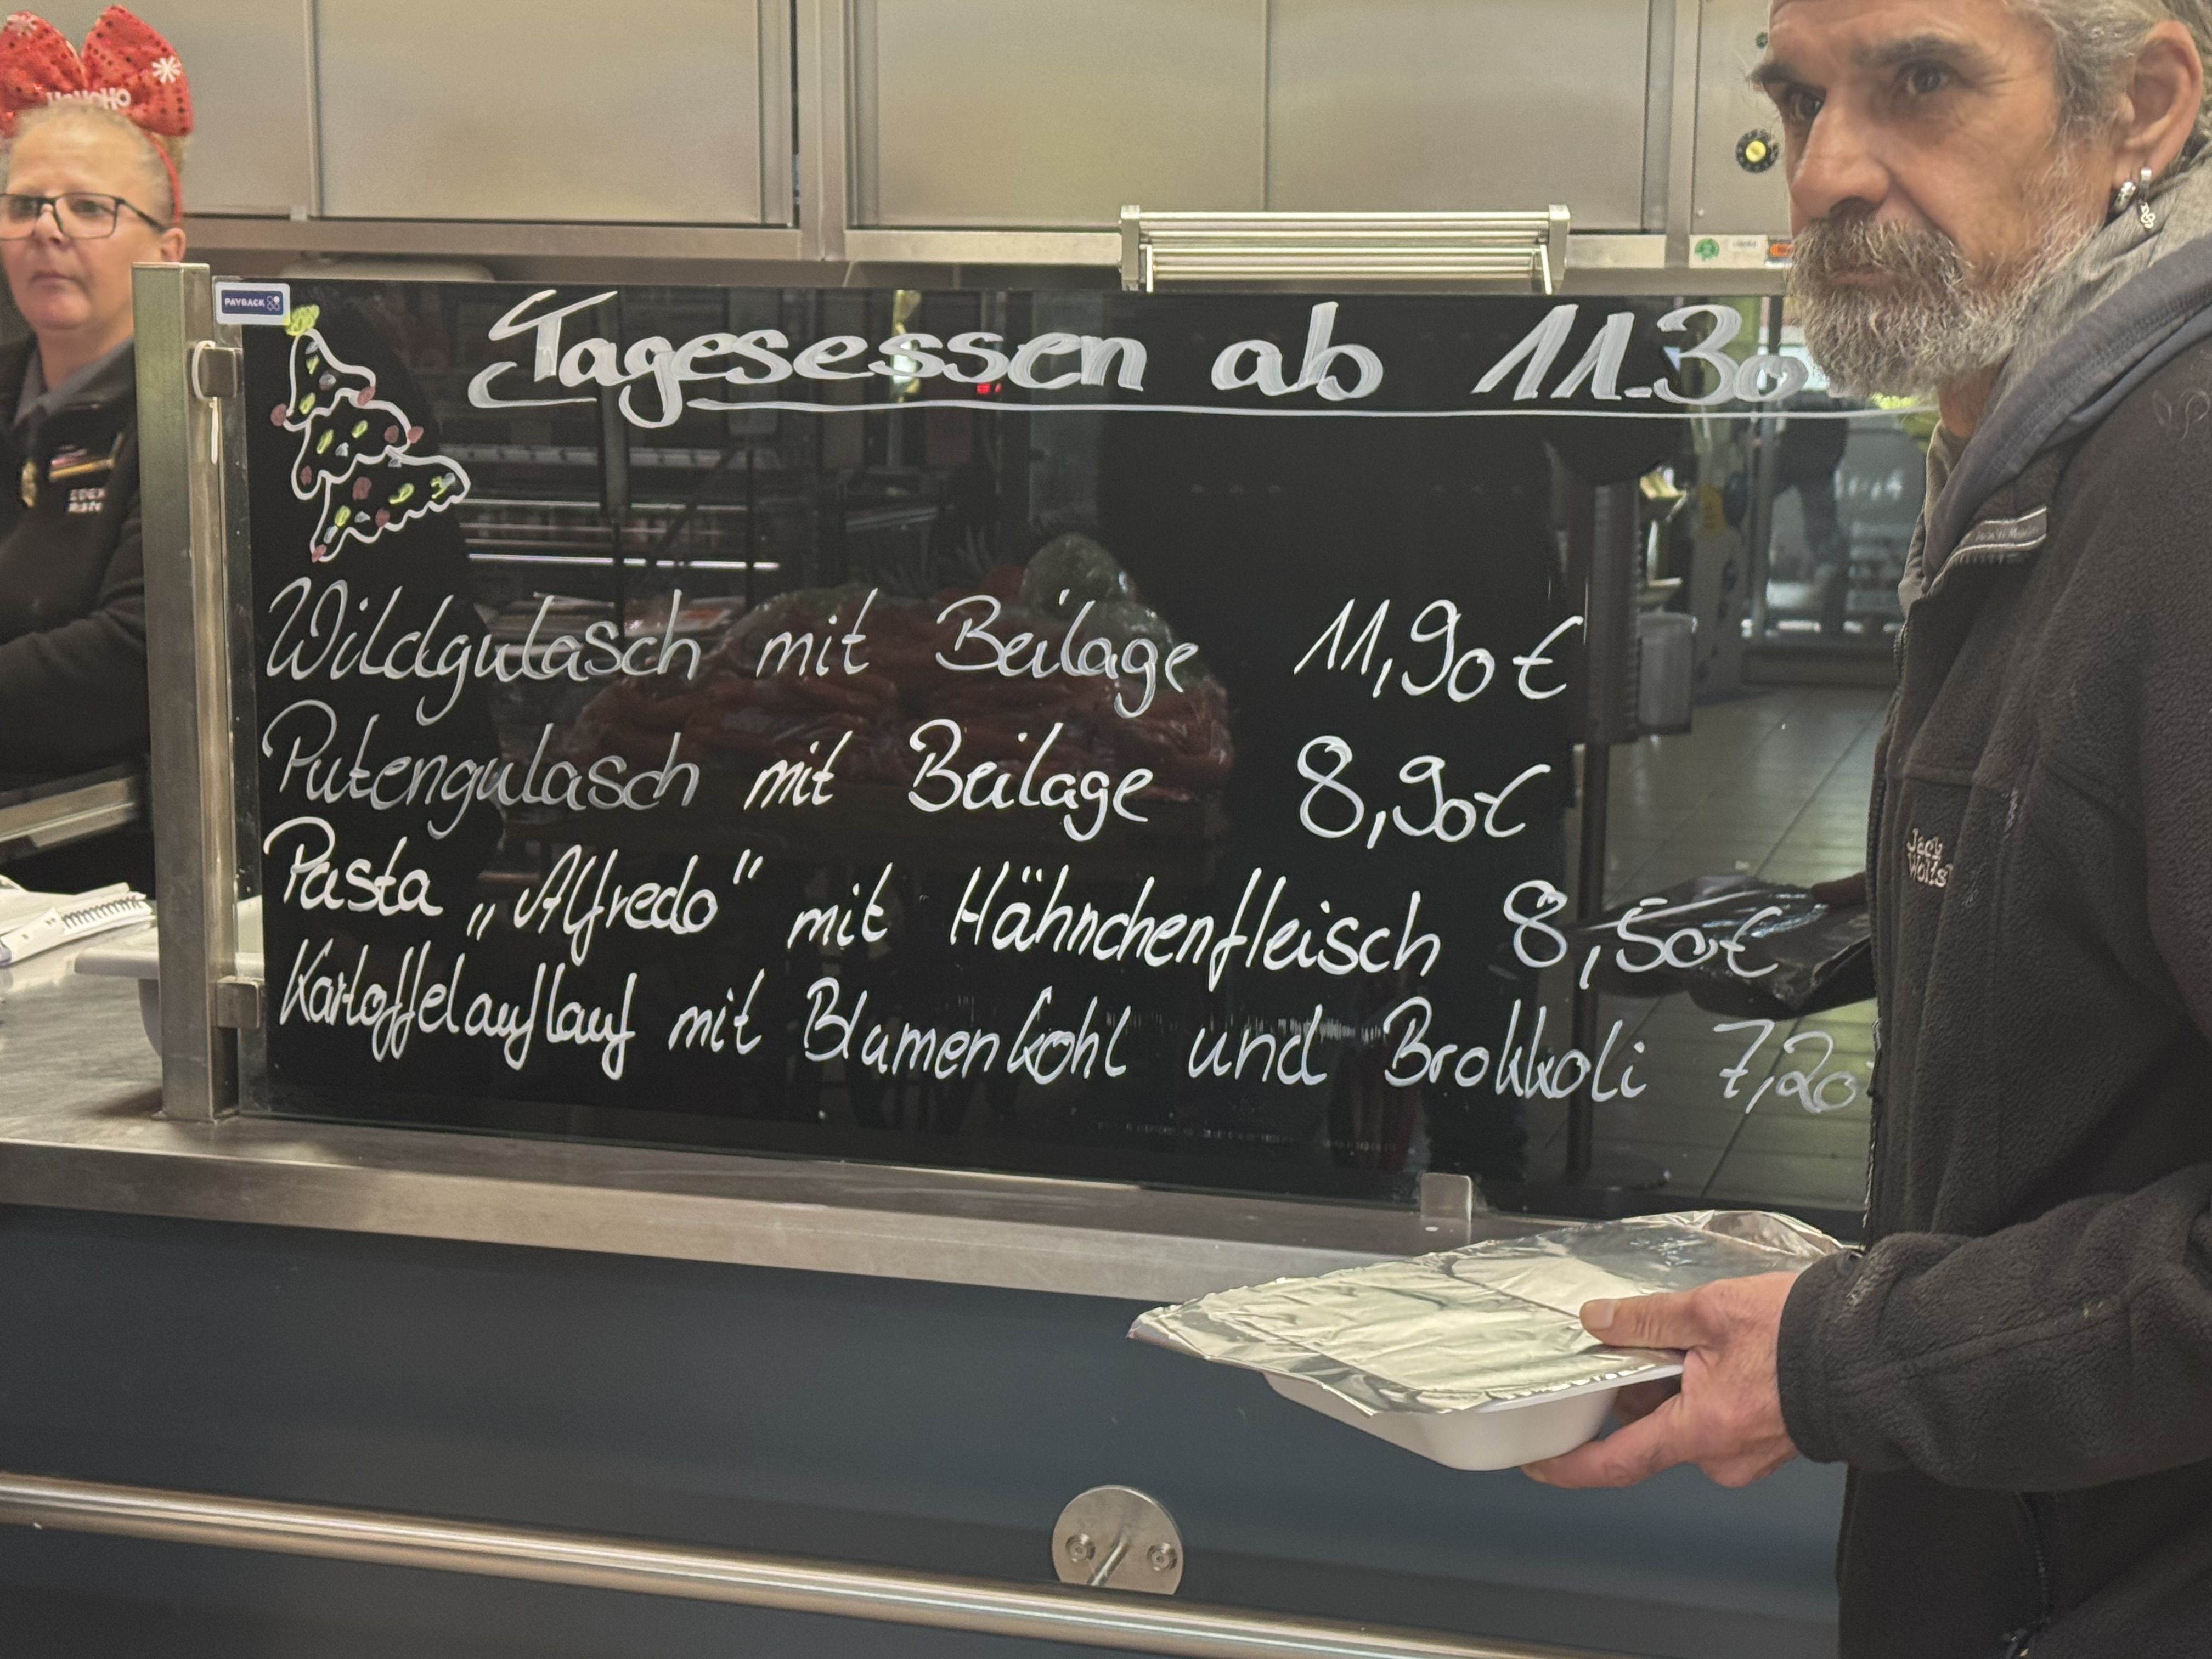 HOHOHO
PAYBACK
Tagesessen ab 11.30
Wildgulasch mit Beilage 11,90€
Putengulasch mit Beilage 8,90€
Pasta „Alfredo" mit Hähnchenfleisch 8,50€
Kartoffelauflauf mit Blumenkohl und Brokkoli 7,20
Jack
Wolfs